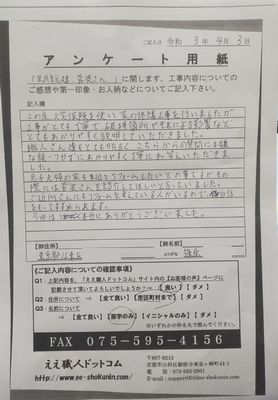 ご記入日 令和 3年 4月 3日
アンケート用紙
さん 」に関します、工事内容についての
ご感想や第一印象・お人柄などについてご記入下さい。
記入欄
この度、火災保険を使い家の修繕工事を行いましたが
工事がとても丁寧で、破壊箇所やそれによる影響など
とてもわかりやすく説明していただきました。
職人さん達もとても明るく、こちらからの質問にも嫌
な顔一つせずにわかりやすく丁寧にお答えいただきまし
た。
リフォームしたいとの事ですがその
際には を紹介してほしいと言っていました。
ご近所さんにもリフォームを考えている人がいるので
をすすめておきます。
今回は 本当にありがとうございました。
【御住所】
【御名前】
東京都江東区
(ご記入内容についての確認事項)
Q1:上記内容を、「ええ職人ドットコム」サイト内の「お客様の声」ページに
記載させて頂いてよろしいでしょうか?→【良い】【ダメ】
Q2:住所について →【全て良い】【市区町村まで】【ダメ】
Q3:名前について
→【全て良い】【苗字のみ】【イニシャルのみ】【ダメ】
※いずれかの枠を丸で囲んでください。
FAX 075-595-4156
ええ職人ドットコム
http://www.ee-shokunin.com/
〒607-8213
京都市山科区勧修寺東金ヶ崎町41-1
電話:075-583-2801
E-mail:support001@ee-shokunin.com